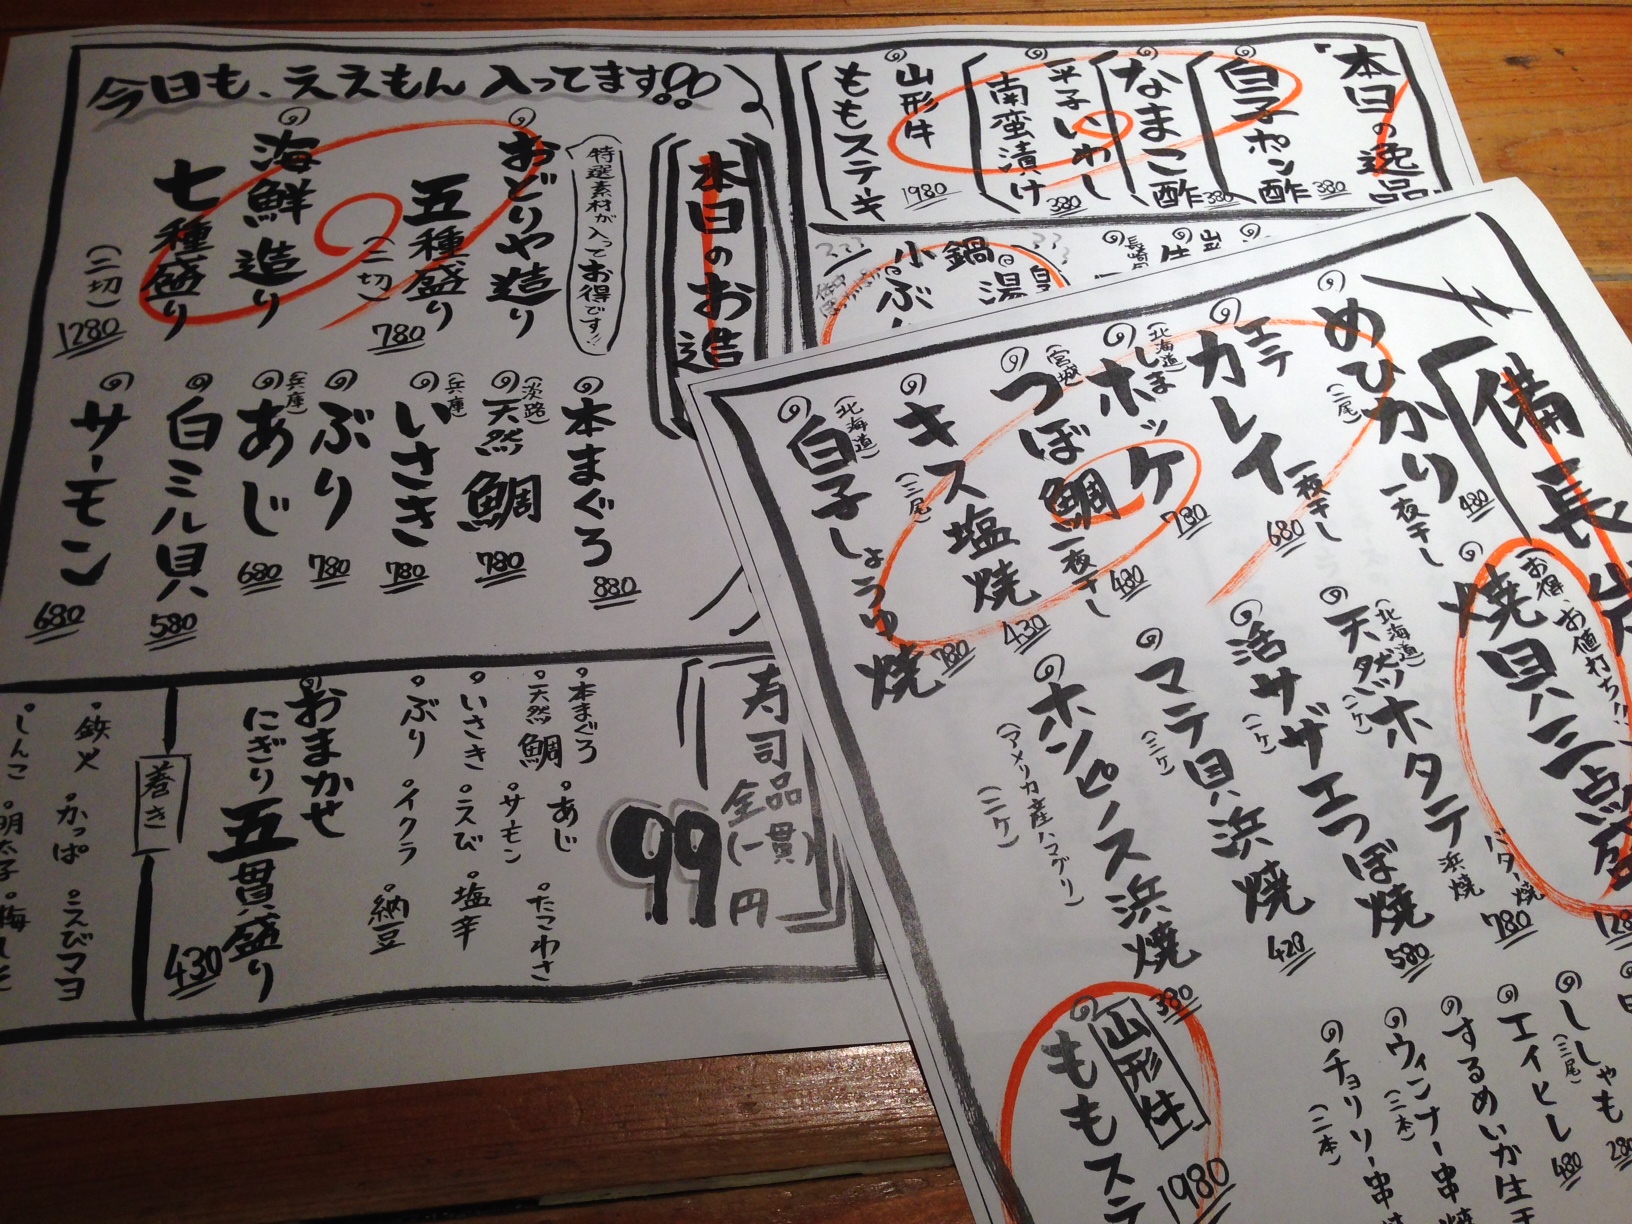 今日も、ええもん入ってます!!
本日のお造
特選素材が入ってお得です!!
おどりや造り
五種盛り
(二切)
780
海鮮造り
七種盛り
(二切)
1280
本まぐろ
880
(淡路)
天然鯛
780
(兵庫)
いさき
780
ぶり
780
(兵庫)
あじ
680
白ミル貝
580
サーモン
680
寿司全品
(一貫)
99円
・本まぐろ ・あじ ・たこわさ
・天然鯛 ・サーモン
・いさき ・えび ・塩辛
・ぶり ・イクラ ・納豆
おまかせ
にぎり五貫盛り
430
巻き
・鉄火 ・かっぱ ・えびマヨ
・しんこ ・明太子
本日の逸品
白子ポン酢
380
なまこ酢
380
平子いわし
南蛮漬け
380
山形牛
ももステーキ
1980
鍋
小ぶ
湯
備長
めひかり一夜干し
(二尾)
480
エテカレイ一夜干し
680
(北海道)
しまホッケ
780
(宮城)
つぼ鯛一夜干し
480
キス塩焼
(三尾)
430
(北海道)
白子しょうゆ焼
780
お得
お値打ち!!
焼貝三点
(北海道)
天然ホタテ
(二ケ)
バター焼
浜焼
780
活サザエつぼ焼
(一ケ)
580
マテ貝浜焼
(三ケ)
420
ホンビノス浜焼
(アメリカ産ハマグリ)
(二ケ)
380
ししゃも
(三尾)
280
エイヒレ
480
するめいか生干
ウィンナー串焼
(二本)
チョリソー串焼
(二本)
山形牛
ももステ
1980